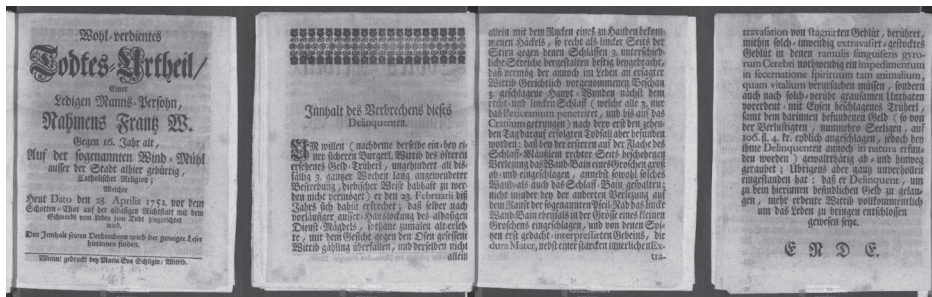 Wohl-verdientes
Todtes-Urtheil/
Einer
Ledigen Manns-Persohn,
Nahmens Frantz W.
Gegen 16. Jahr alt,
Auf der sogenannten Wind-Mühl
ausser der Stadt alhier gebürtig,
Catholischer Religion;
Welcher
Heut Dato den 28. Aprilis 1751. vor dem
Schotten-Thor auf der aldasigen Richtstatt mit dem
Schwerdt vom Leben zum Todt hingerichtet
wird.
Den Innhalt seines Verbrechens wird der geneigte Leser
hierinnen finden.
Wienn/ gedruckt bey Maria Eva Schilgin/ Wittib.
Innhalt des Verbrechens dieses
Delinquenten.
UM willen (nachdeme derselbe ein-bey ei-
ner sicheren Burgerl. Wittib des öfteren
ersehenes Geld-Trüherl, ungehindert all dis-
fällig 3. gantzer Wochen lang angewendeter
Bestrebung, diebischer Weise habhaft zu wer-
den nicht vermöget) er den 23. Februarii diß
Jahrs sich dahin erfrechet; daß selber nach
vorläufiger ausser-Hauslockung des aldasigen
Dienst-Mägdels, sothane zumalen alt-erleb-
te, mit dem Gesicht gegen den Ofen gesessene
Wittib gähling überfallen, und derselben nicht
allein
allein mit dem Rucken eines zu Handen bekom-
menen Häckels, so recht als lincker Seits der
Stirn gegen denen Schläffen 3. unterschied-
liche Streiche dergestalten heftig beygebracht,
daß vermög der annoch im Leben an ersagter
Wittib Gerichtlich vorgenommenen Beschau
3. geschlagene Haupt-Wunden nächst dem
recht- und lincken Schlaff (welche alle 3. nur
das Pericranium penetriret, und bis auf das
Cranium getrungen) nach dero erst den zehen-
den Tag darauf erfolgten Todfall aber befunden
worden; daß bey der ersteren auf der Fläche des
Schlaff-Mäusleins rechter Seits beschehenen
Verletzung das Wand-Bain eines Groschen groß
ab- und eingeschlagen, annebst sowohl solches
Wand- als auch das Schlaff-Bain gespalten;
nicht minder bey der anderten Verletzung auf
dem Ranft der sogenannten Pfeil-Nad das lincke
Wand-Bain ebenfals in der Grösse eines kleinen
Groschens eingeschlagen, und von denen Spi-
tzen erst gedacht-interpressirten Gebeins, die
dura Mater, nebst einer starcken innerlichen Ex-
tra-
travasation von stagnirten Geblüt, berühret,
mithin solch-inwendig extravasirt-gestocktes
Geblüt in denen ramulis sanguifems gyro-
rum Cerebri nothwendig ein impedimentum
in secernatione spirituum tam animalium,
quam vitalium verursachen müssen, sondern
auch nach solch-verübt grausamen Unthaten
vorerdeut-mit Eysen beschlagenes Trüherl,
samt dem darinnen befundenen Geld (so von
der Verunfligten, nunmehro Seeligen, auf
106. fl. 4. kr. eydlich angeschlagen, jedoch bey
ihme Delinquenten annoch in natura erfun-
den worden) gewaltthätig ab- und hinweg
geraubet; Ubrigens aber gantz unverhollen
eingestanden hat: daß er Delinquent, um
zu dem hierinnen befindlichen Geld zu gelan-
gen, mehr erdeute Wittib vollkommentlich
um das Leben zu bringen entschlossen
gewesen seye.
E N D E.